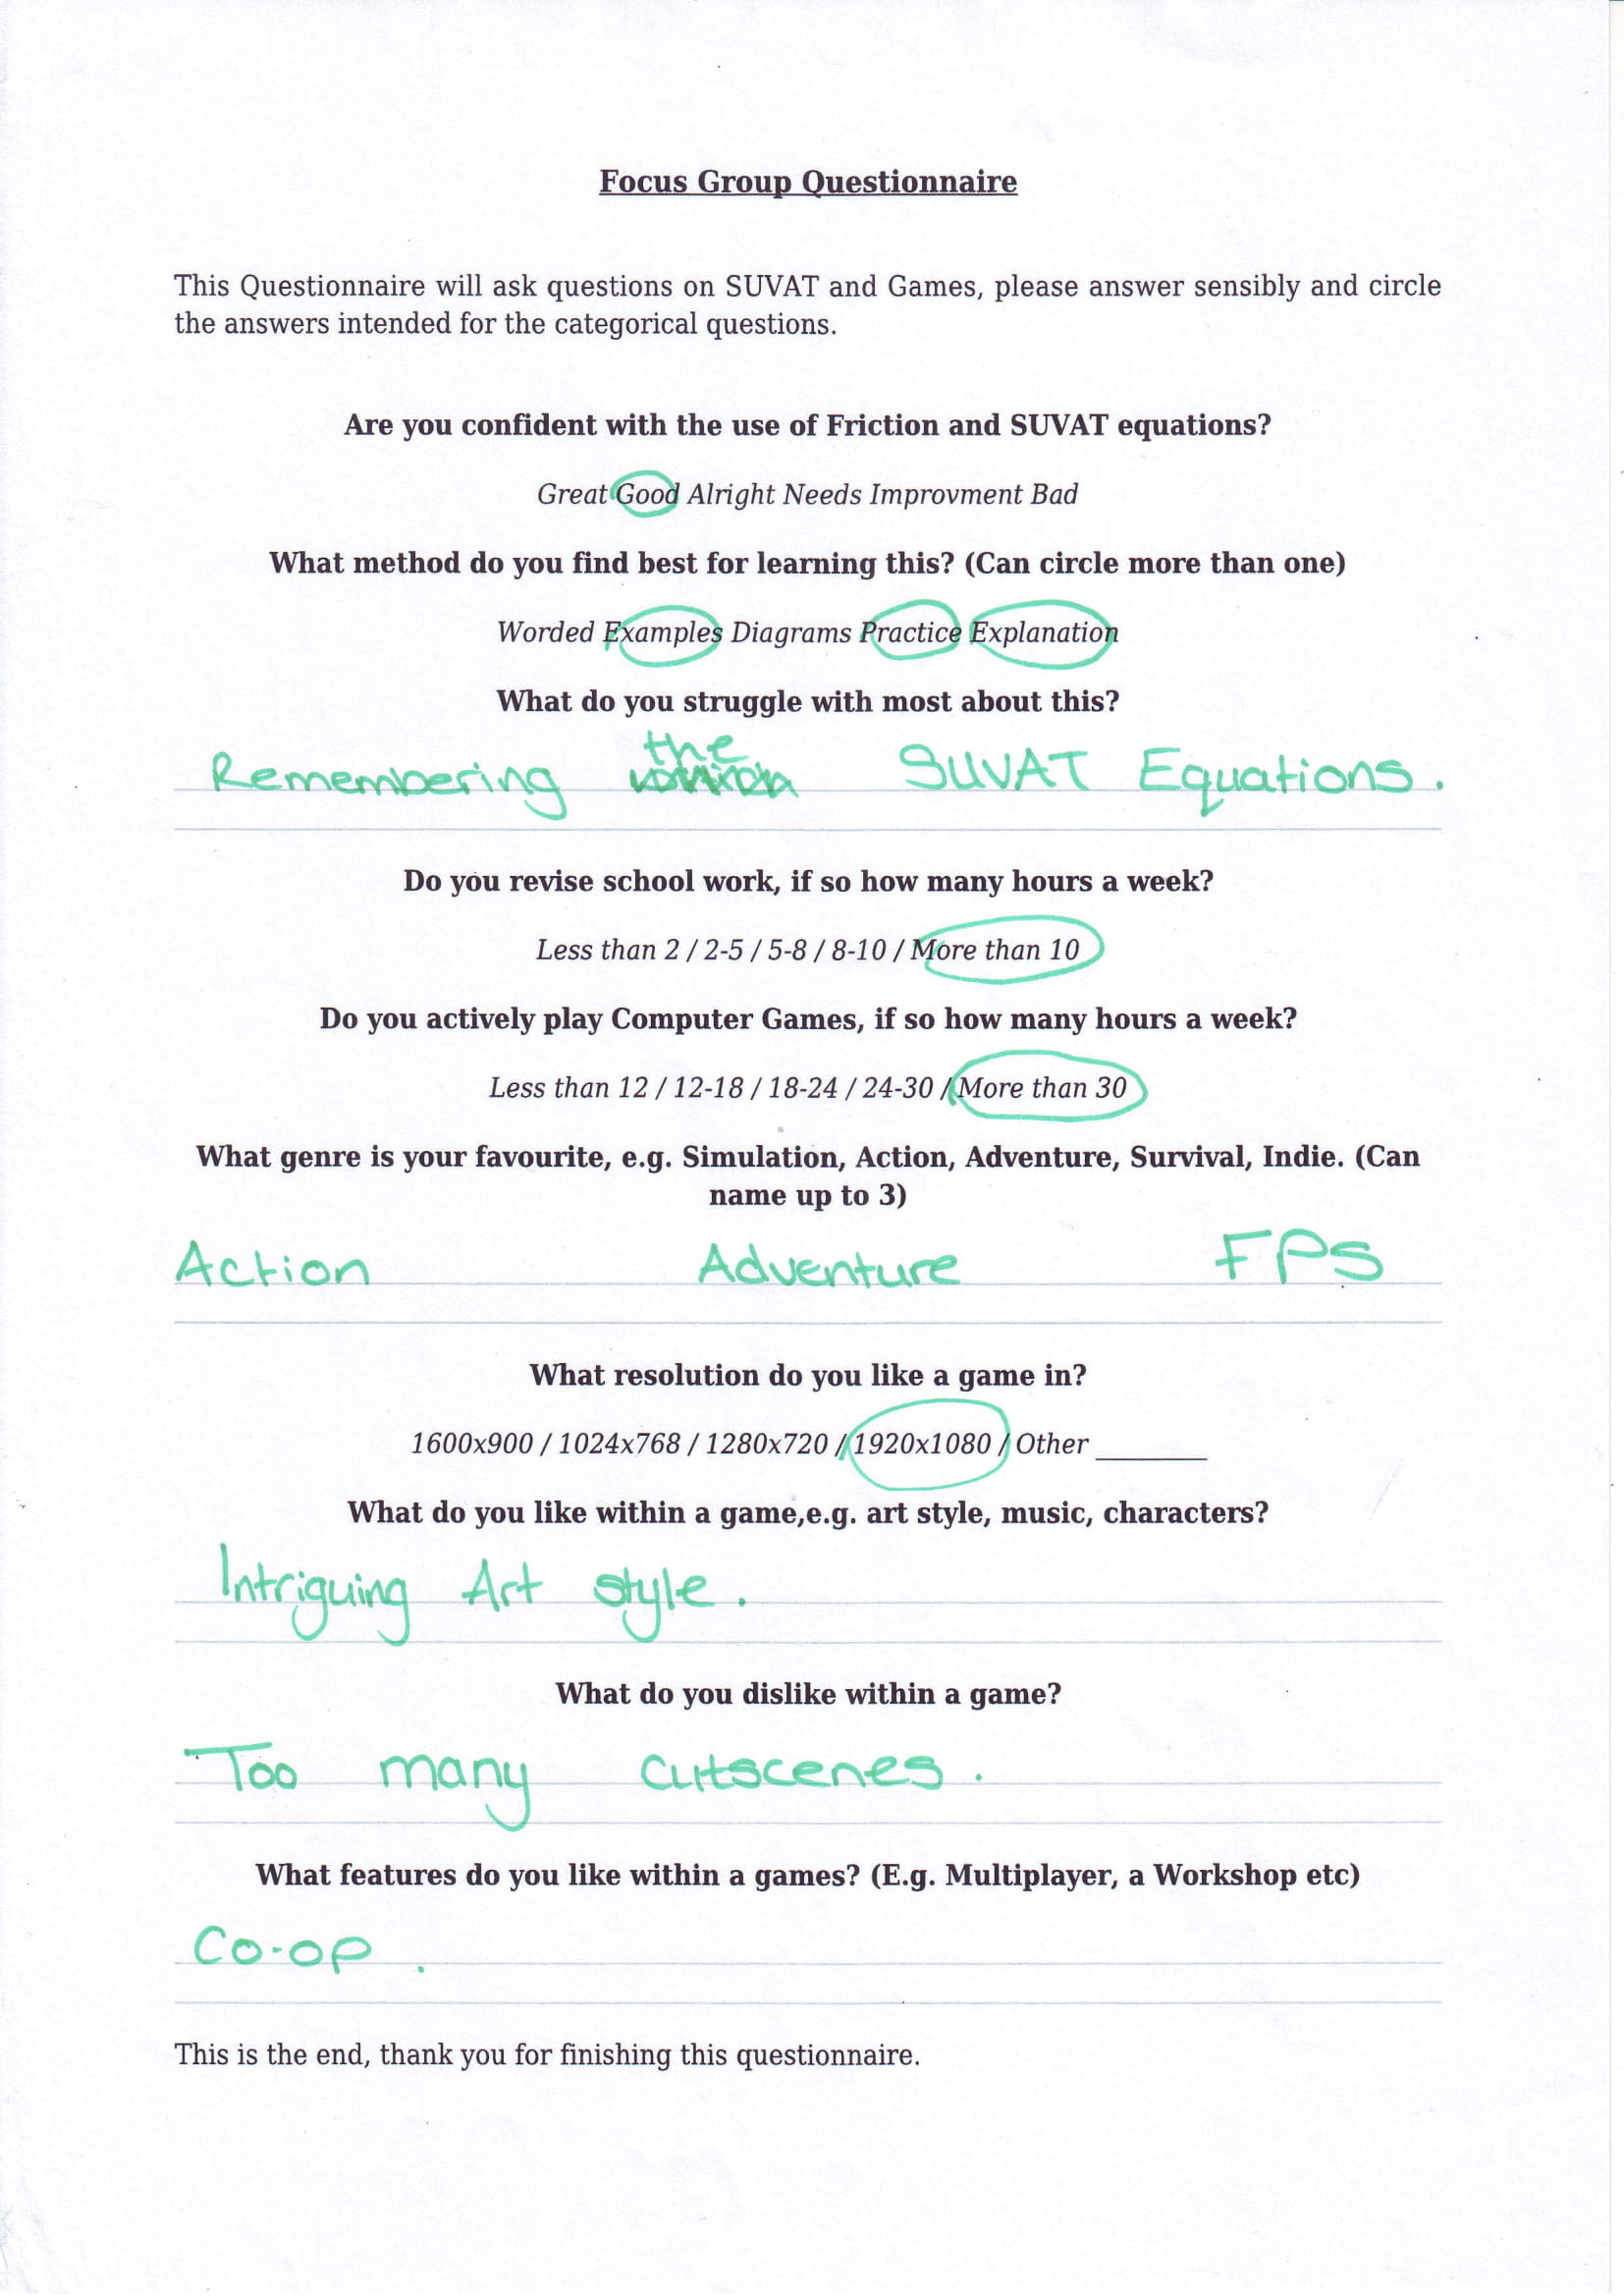 Focus Group Questionnaire
This Questionnaire will ask questions on SUVAT and Games, please answer sensibly and circle
the answers intended for the categorical questions.
Are you confident with the use of Friction and SUVAT equations?
Great Good Alright Needs Improvment Bad
What method do you find best for learning this? (Can circle more than one)
Worded Examples Diagrams Practice Explanation
What do you struggle with most about this?
Remembering the SUVAT Equations.
Do you revise school work, if so how many hours a week?
Less than 2 / 2-5 / 5-8 / 8-10 / More than 10
Do you actively play Computer Games, if so how many hours a week?
Less than 12 / 12-18 / 18-24 / 24-30 / More than 30
What genre is your favourite, e.g. Simulation, Action, Adventure, Survival, Indie. (Can
name up to 3)
Action Adventure FPS
What resolution do you like a game in?
1600x900 / 1024x768 / 1280x720 / 1920x1080 / Other ________
What do you like within a game,e.g. art style, music, characters?
Intriguing Art style.
What do you dislike within a game?
Too many cutscenes.
What features do you like within a games? (E.g. Multiplayer, a Workshop etc)
Co-op.
This is the end, thank you for finishing this questionnaire.